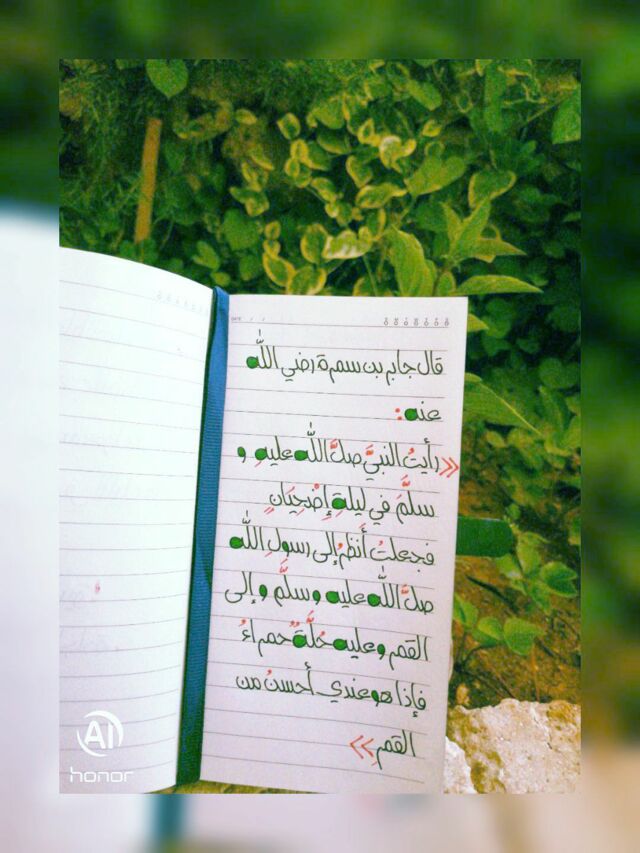 DATE / /
قال جابر بن سمرة رضي اللّٰه
عنه:
«رأيتُ النبيَّ صلَّ اللّٰه عليهِ و
سلَّمَ في ليلةٍ إِضْحِيَانٍ
فجعلتُ أَنظرُ إلى رسولِ اللّٰه
صلَّ اللّٰه عليه وسلَّم وإلى
القمر وعليه حُلَّةٌ حمراءُ
فإذا هو عندي أحسنُ من
القمرِ»
AI
honor